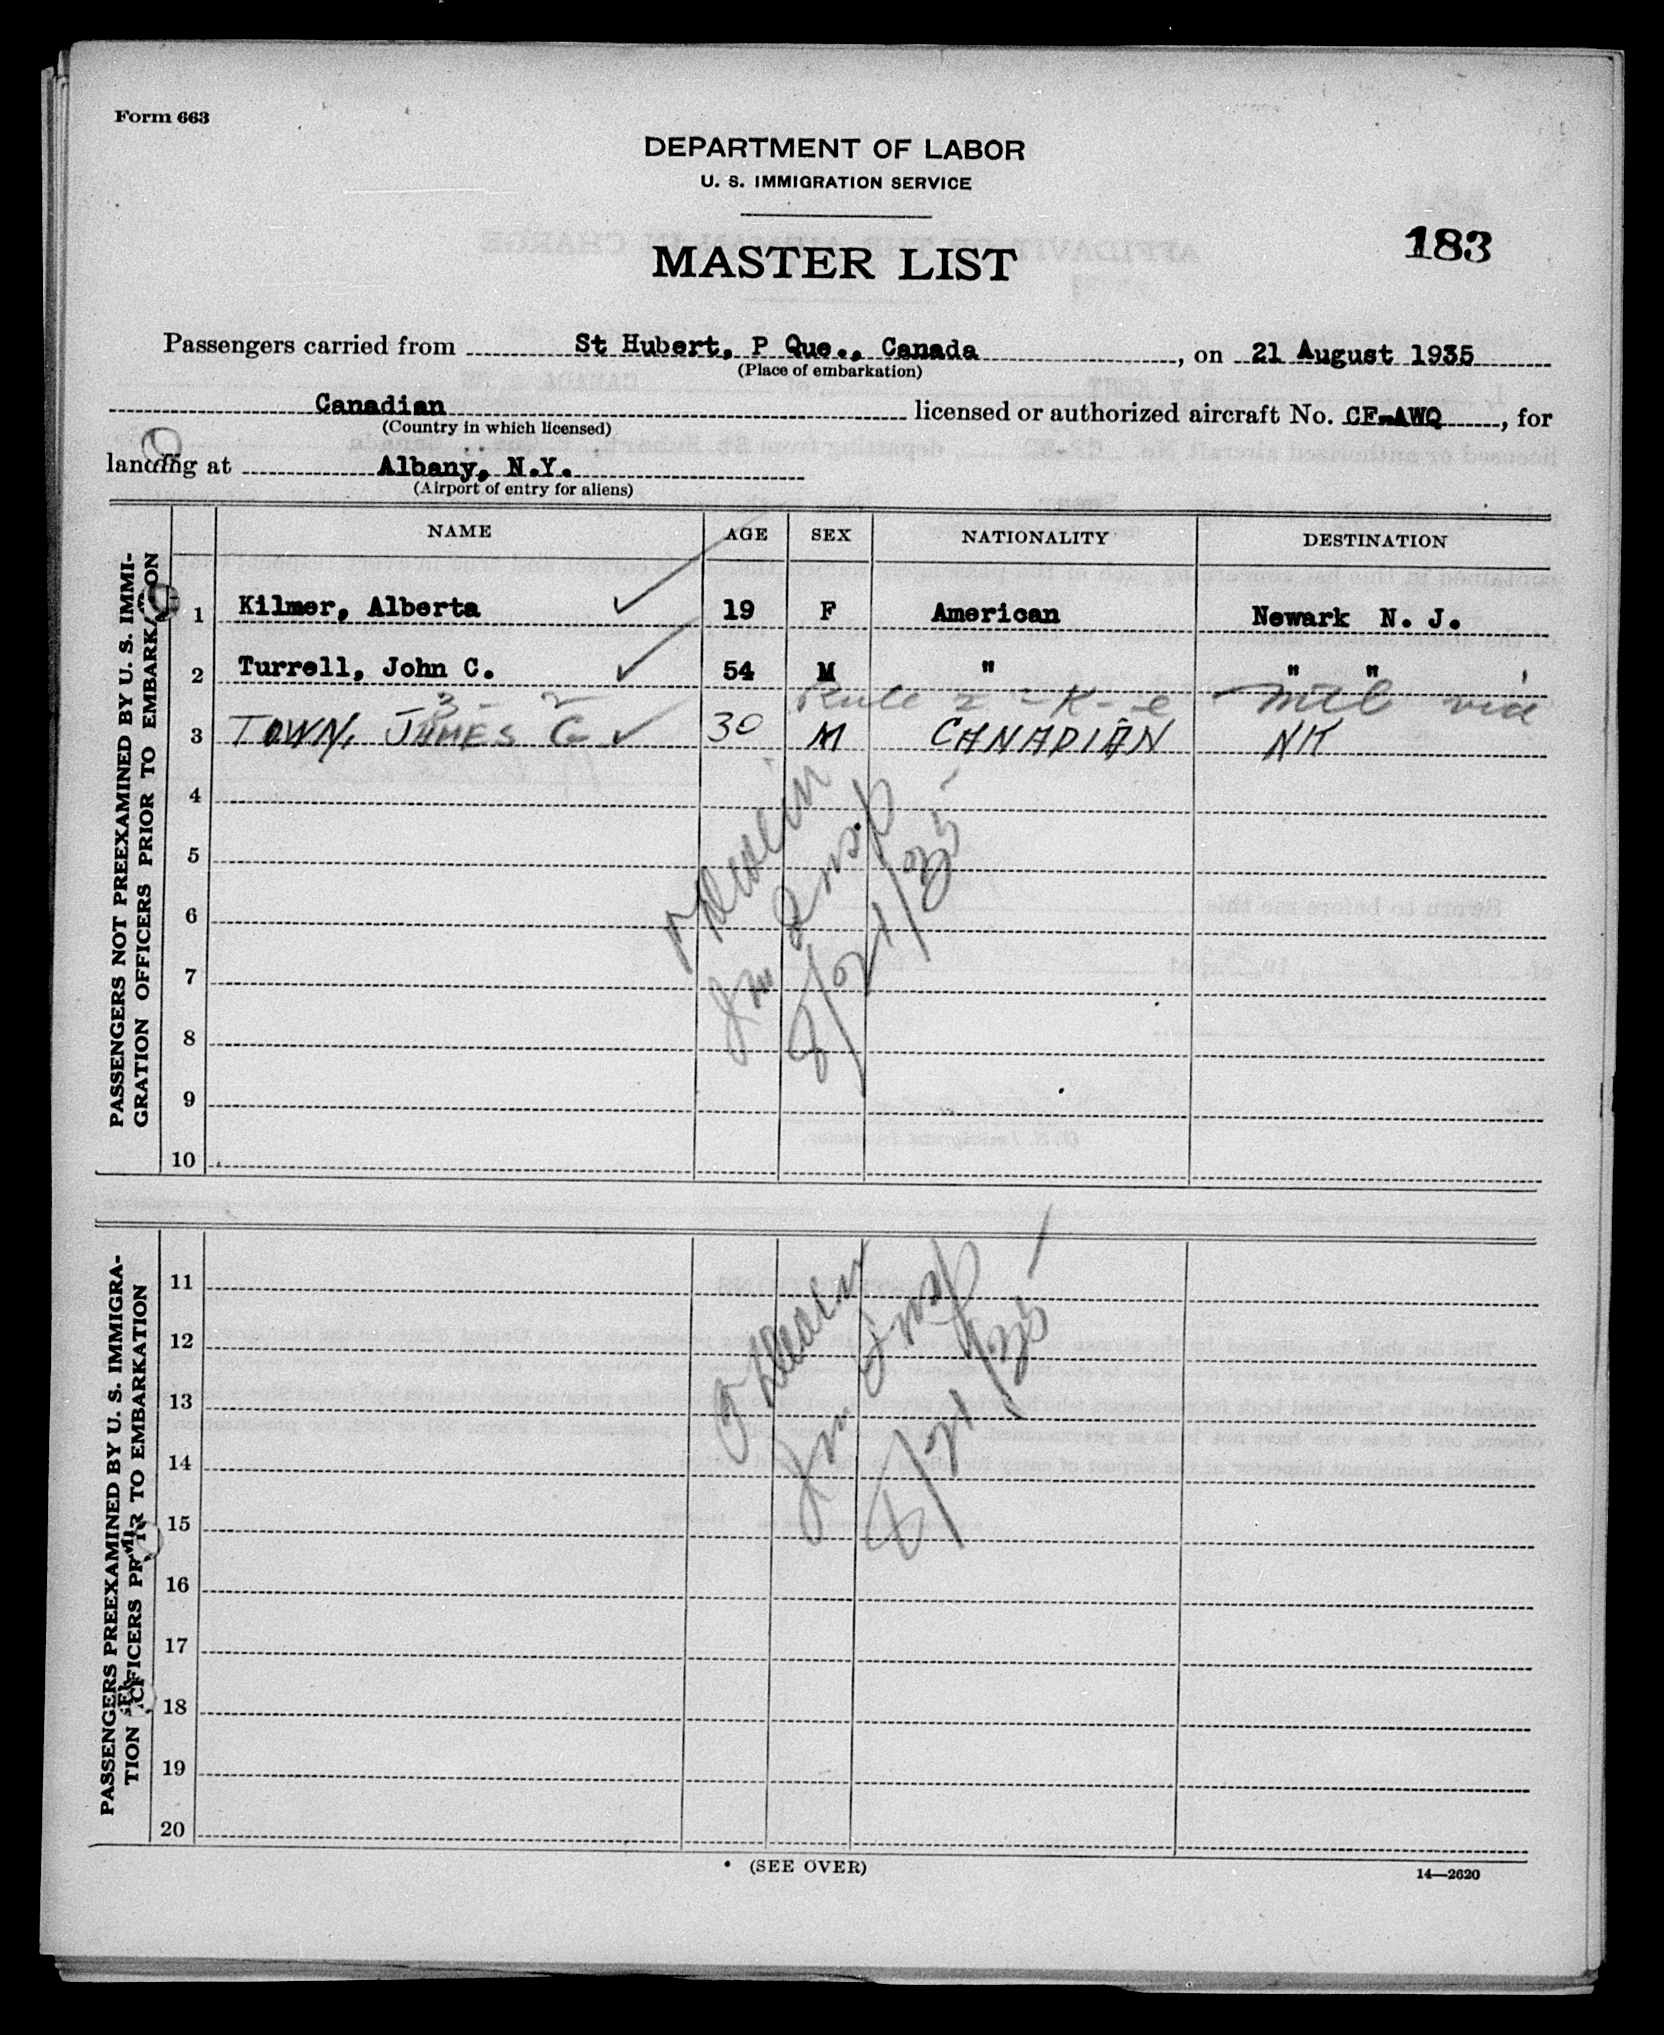 Form 663
DEPARTMENT OF LABOR
U. S. IMMIGRATION SERVICE
183
MASTER LIST
Passengers carried from St Hubert, P Que., Canada, on 21 August 1935
(Place of embarkation)
Canadian licensed or authorized aircraft No. CF-AWQ, for
(Country in which licensed)
landing at Albany, N.Y.
(Airport of entry for aliens)
NAME AGE SEX NATIONALITY DESTINATION
PASSENGERS NOT PREEXAMINED BY U. S. IMMI-
GRATION OFFICERS PRIOR TO EMBARKATION
1 Kilmer, Alberta ✓ 19 F American Newark N. J.
2 Turrell, John C. ✓ 54 M " " "
3 - 2 Rule 2 - K - e Mtl via
3 TOWN, JAMES G ✓ 30 M CANADIAN NK
4
5
6
7
8
9
10
Imm Insp
8/21/35
PASSENGERS PREEXAMINED BY U. S. IMMIGRA-
TION OFFICERS PRIOR TO EMBARKATION
11
12
13
14
15
16
17
18
19
20
Imm Insp
8/21/35
(SEE OVER)
14—2620